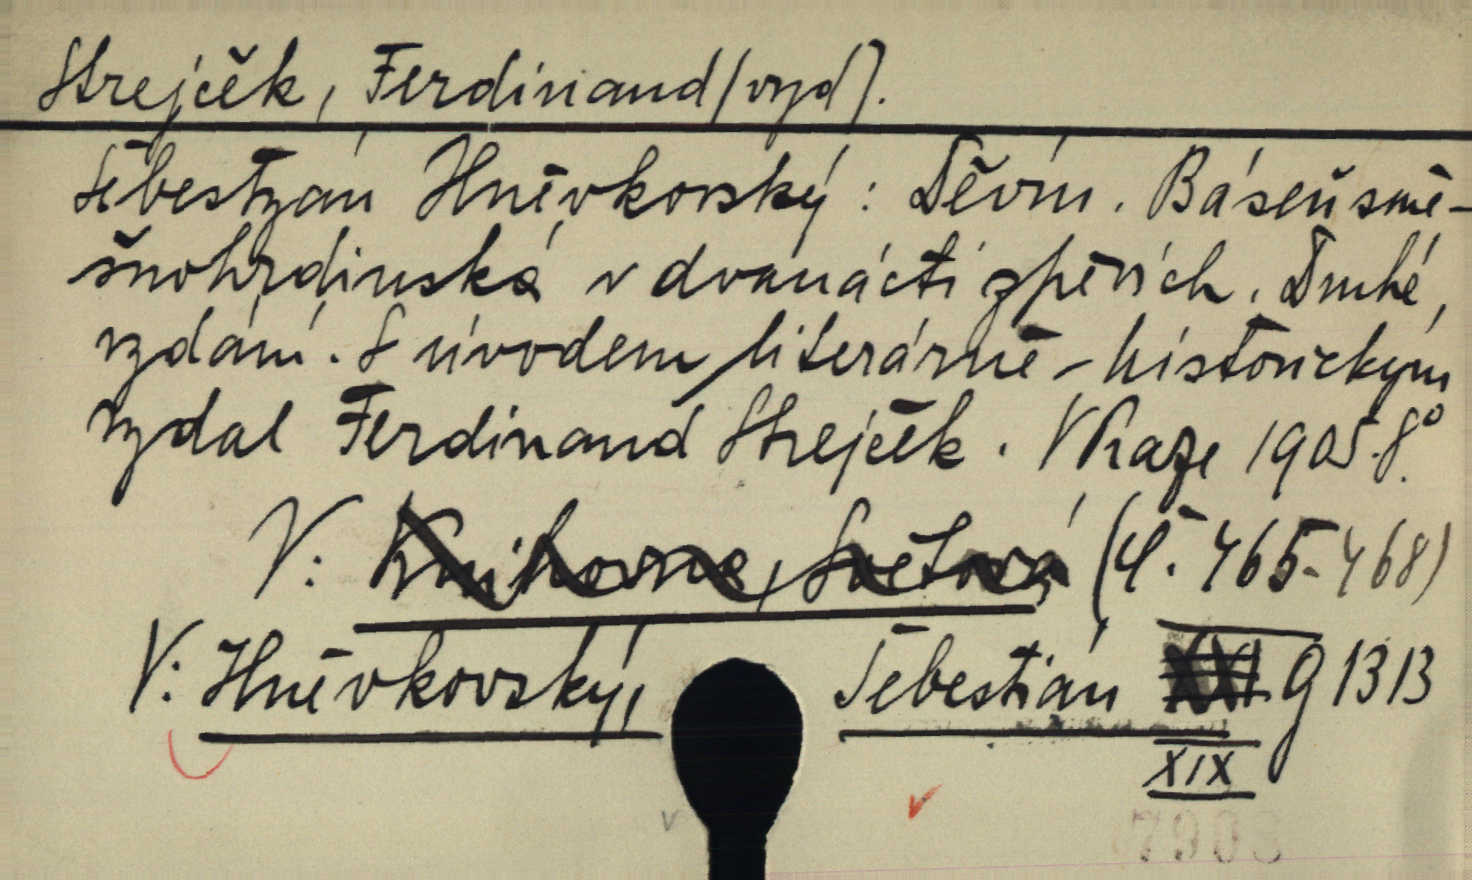 Strejček, Ferdinand / vyd /.
Šebestyán Hněvkovský: Děvín. Báseň smě-
šnohrdinská v dvanácti zpěvích. Druhé
vydání. S úvodem literárně-historickým
vydal Ferdinand Strejček. V Praze 1905. 8°.
V: Knihovna, Světová (č. 465-468)
V: Hněvkovský, Šebestián XXI g 1313
XIX
v
7903